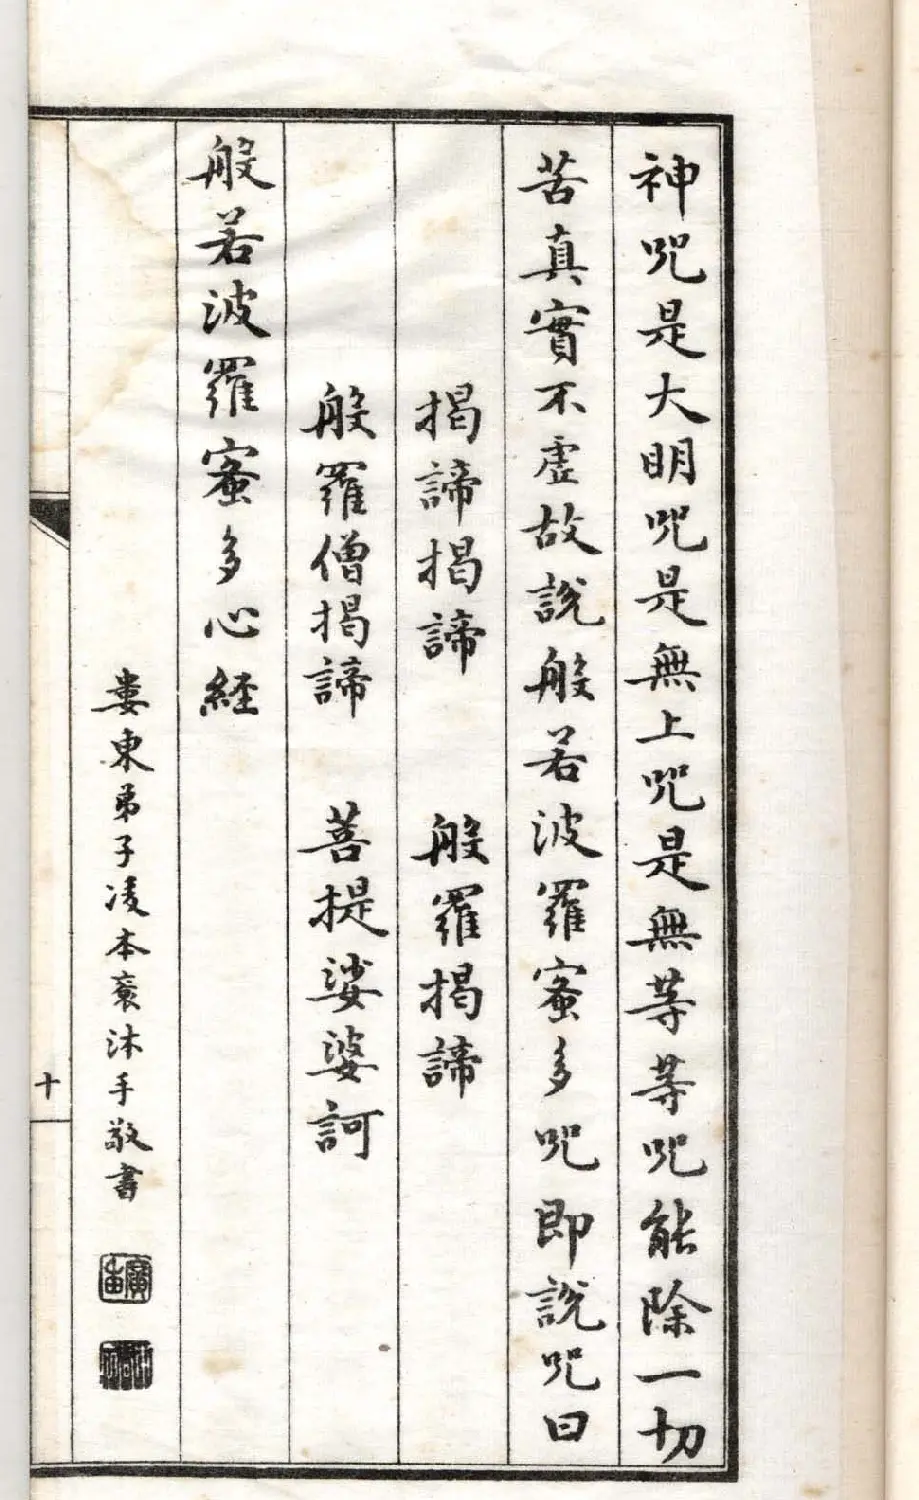 神咒是大明咒是無上咒是無等等咒能除一切
苦真實不虛故說般若波羅蜜多咒即說咒曰
揭諦揭諦 般羅揭諦
般羅僧揭諦 菩提娑婆訶
般若波羅蜜多心經
婁東弟子凌本裒沐手敬書
十